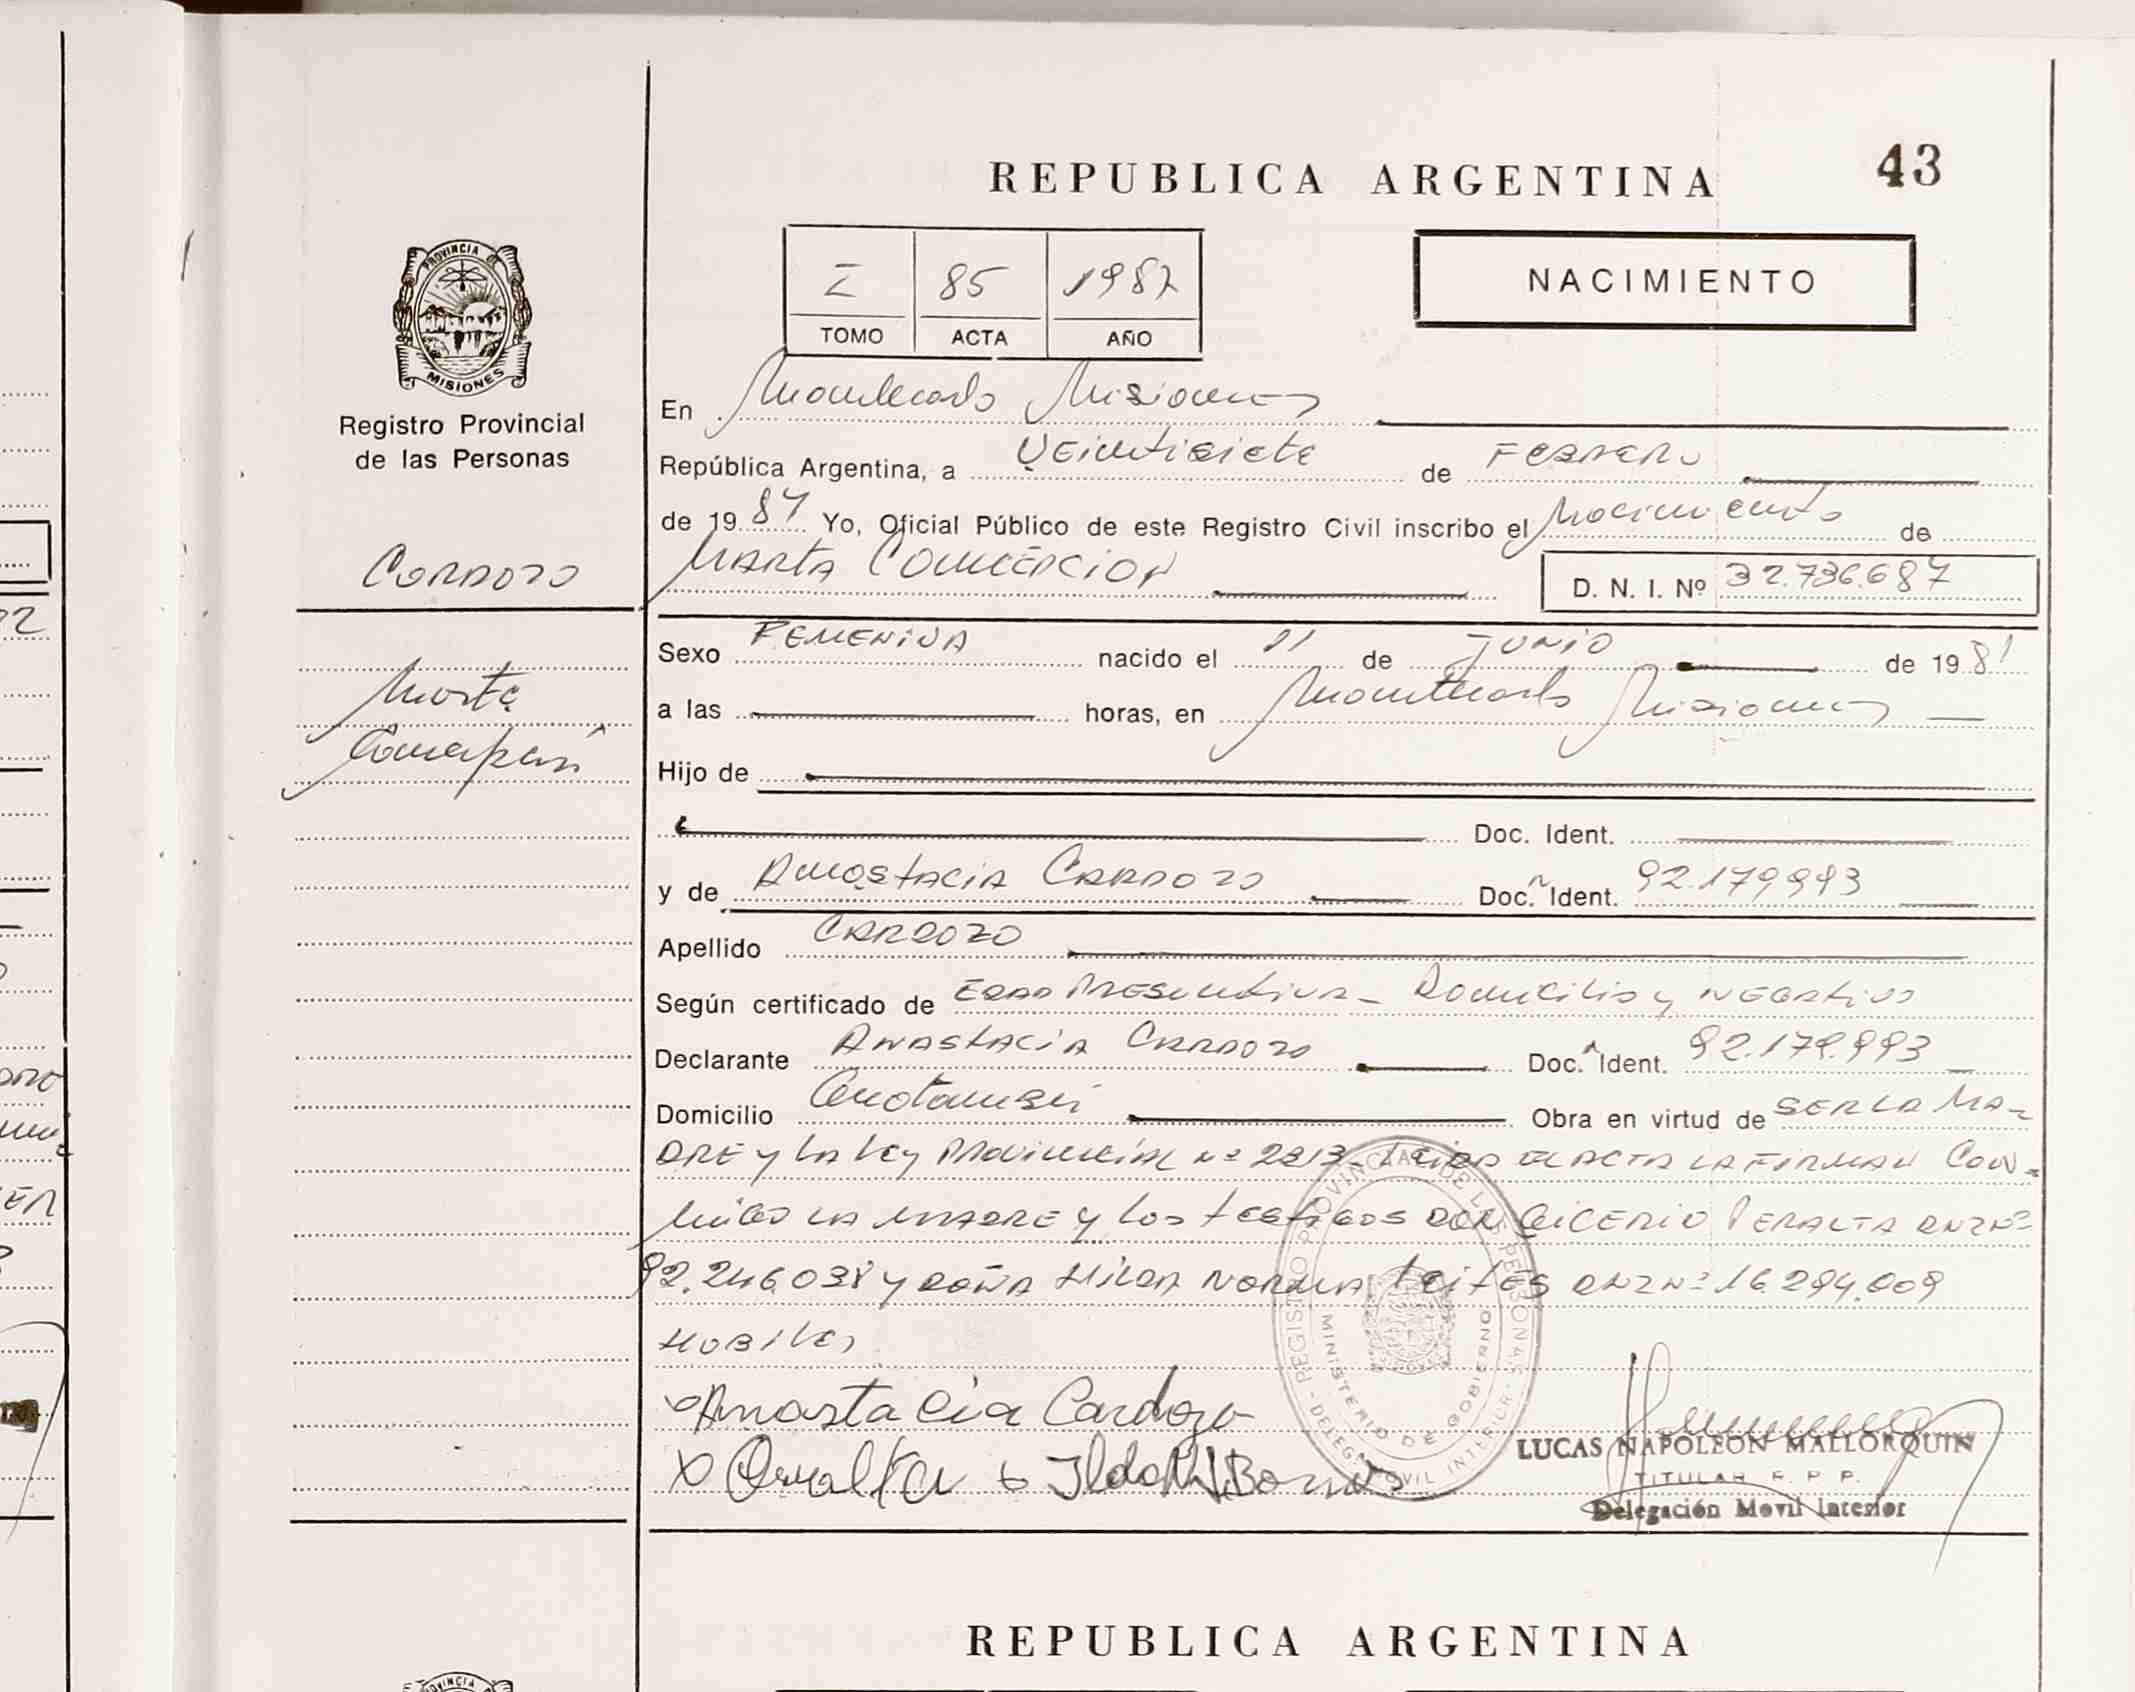 43
REPUBLICA ARGENTINA
NACIMIENTO
I 85 1987
TOMO ACTA AÑO
PROVINCIA DE
MISIONES
Registro Provincial
de las Personas
CARDOZO
Marta
Concepción
En Montecarlo Misiones
República Argentina, a VEintisiete de FEBRERO
de 1987 Yo, Oficial Público de este Registro Civil inscribo el Nacimiento de
MARTA CONCEPCION D. N. I. Nº 32.736.687
Sexo FEMENINA nacido el 11 de JUNIO de 1981
a las horas, en Montecarlo Misiones
Hijo de
Doc. Ident.
y de ANAStACIA CARDOZO Doc. Ident. 92.179.993
Apellido CARDOZO
Según certificado de EDAD PRESUntiva - Domicilio y NEGAtivo
Declarante ANAStACIA CARDOZO Doc. Ident. 92.179.993
Domicilio Obra en virtud de SER LA MA-
DRE y LA LEy PROVINCIAL Nº 2213 - LEIDA EL ACTA LA FIRMAN CON-
MIGO LA MADRE y LOS tEStIGOS DON PERALTA DNI Nº
92.246.038 y DOÑA HILDA NORMA DNI Nº 16.294.009
HOBILES
Anastacia Cardozo
REGISTRO PROVINCIAL DE LAS PERSONAS
MINISTERIO DE GOBIERNO
LUCAS NAPOLEON MALLORQUIN
TITULAR R. P. P.
Delegación Movil Interior
REPUBLICA ARGENTINA